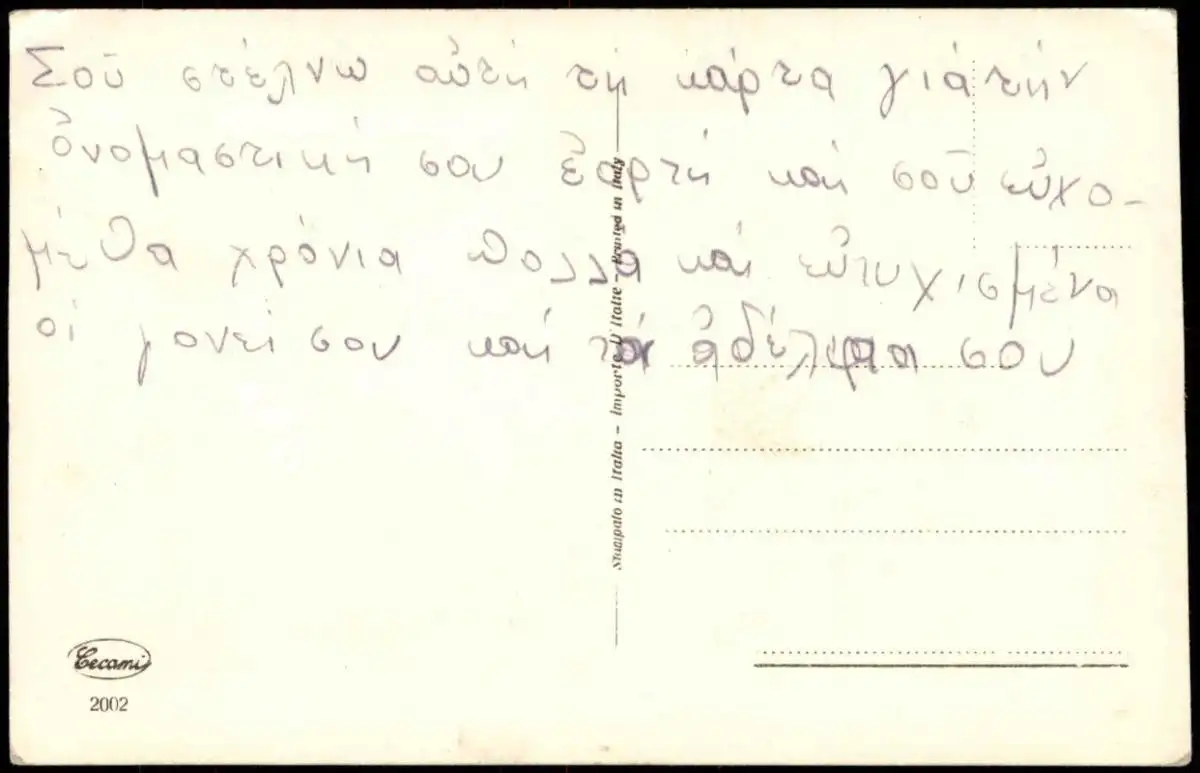 Σοῦ στέλνω αὐτή τή κάρτα γιά τήν
ὀνομαστική σου ἑορτή καί σοῦ εὐχο-
μέθα χρόνια πολλά καί εὐτυχισμένα
οἱ γονεί σου καί τά ἀδέλφια σου
Stampato in Italia - Importe d'Italie - Printed in Italy
Cecami
2002